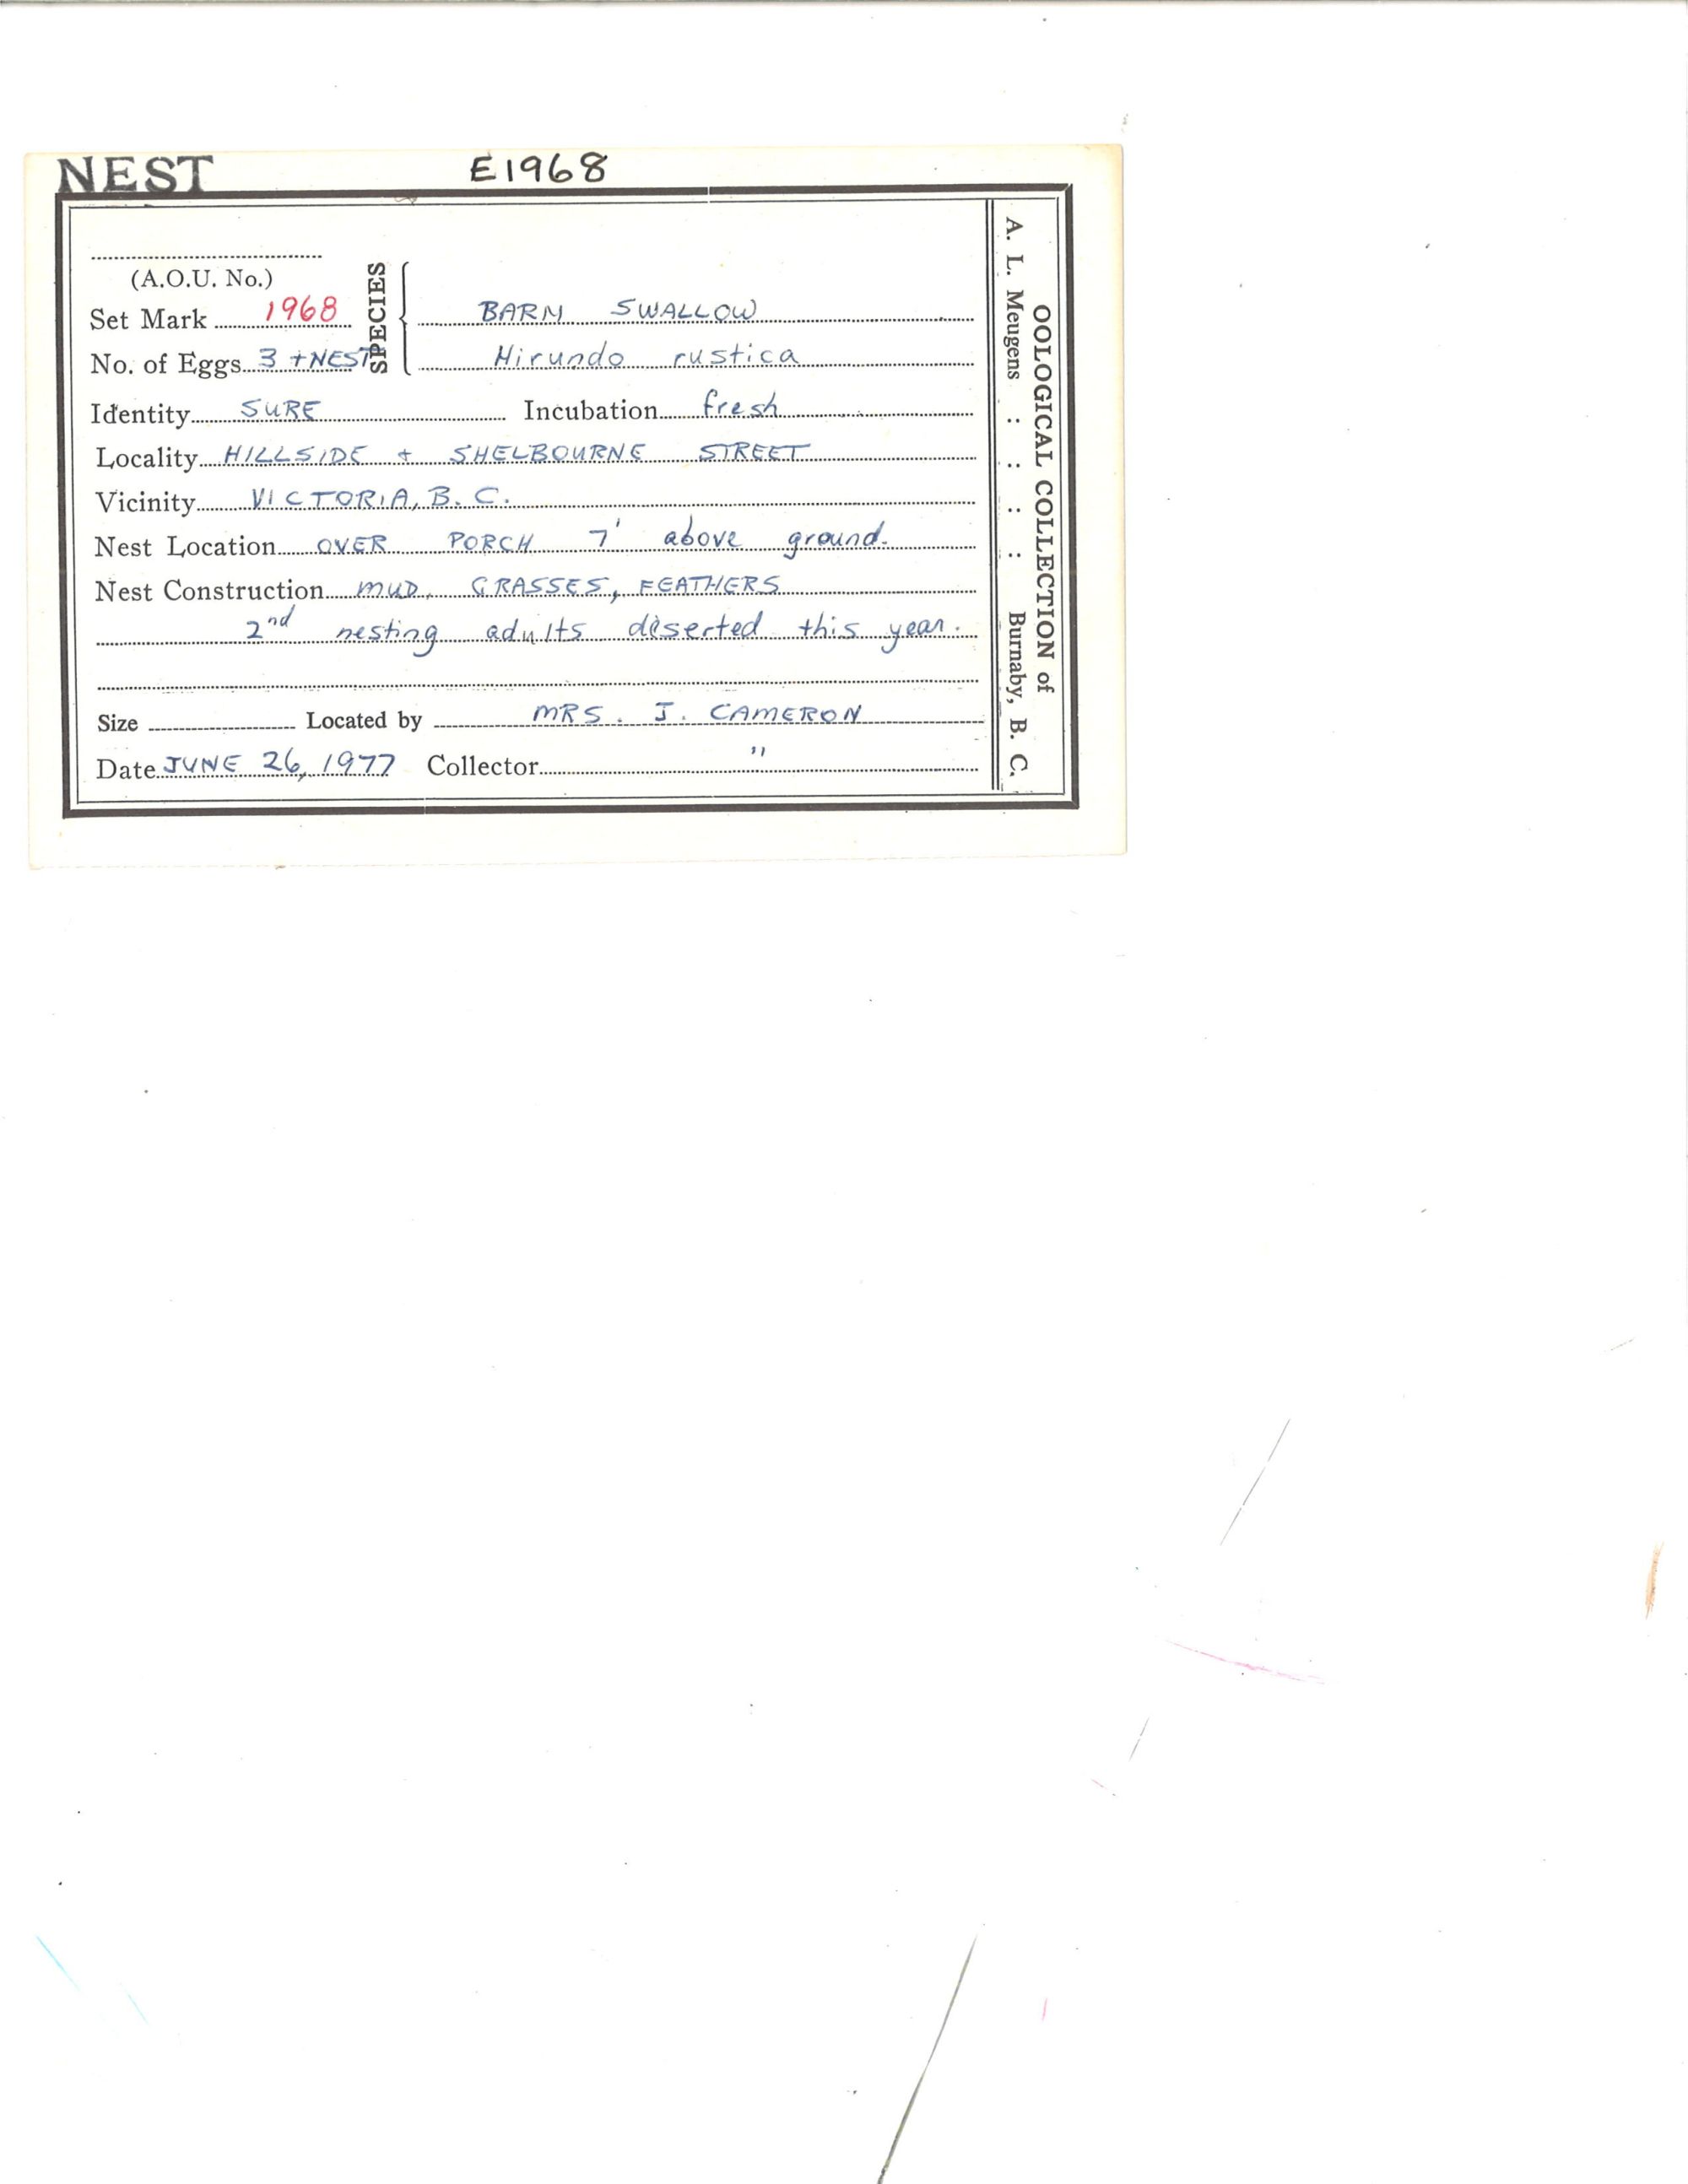 NEST E1968
(A.O.U. No.)
SPECIES
Set Mark 1968 BARN SWALLOW
No. of Eggs 3 + NEST Hirundo rustica
Identity SURE Incubation fresh
Locality HILLSIDE + SHELBOURNE STREET
Vicinity VICTORIA, B.C.
Nest Location OVER PORCH 7' above ground.
Nest Construction MUD, GRASSES, FEATHERS
2nd nesting adults deserted this year.
Size Located by MRS. J. CAMERON
Date JUNE 26, 1977 Collector "
OOLOGICAL COLLECTION of
A. L. Meugens : : : : Burnaby, B. C.